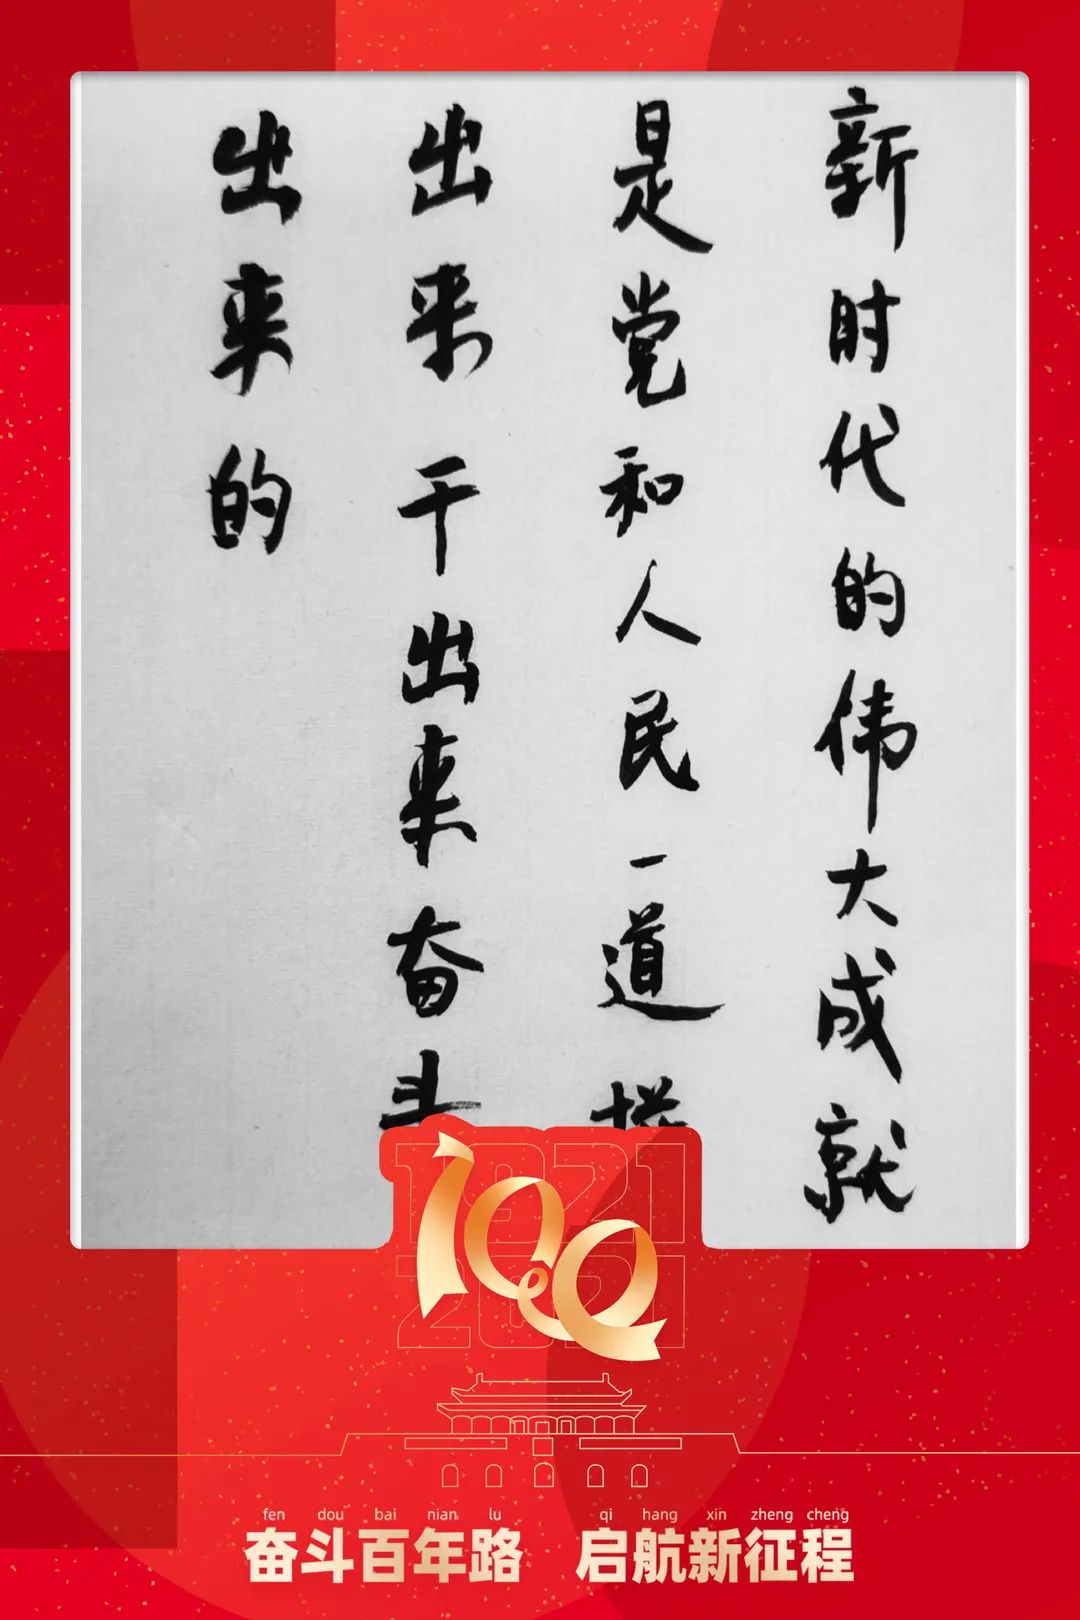 新时代的伟大成就
是党和人民一道
出来干出来奋斗
出来的
1921
100
2021
fen dou bai nian lu qi hang xin zheng cheng
奋斗百年路 启航新征程